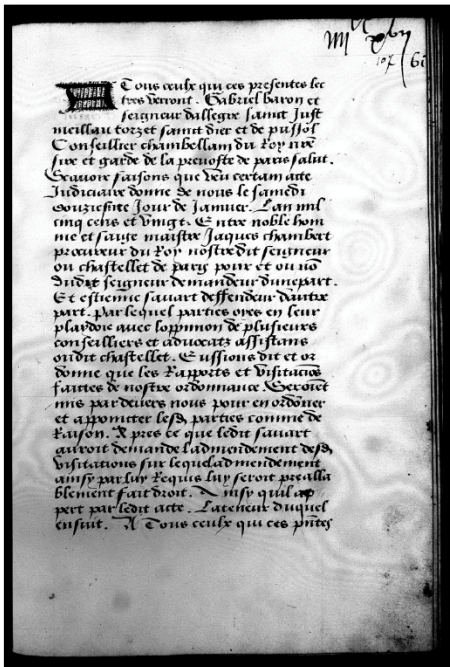 107
A Tous ceulx qui ces presentes lec
tres verront. Gabriel baron et
seigneur dallegre sainct Just
meillau torzet sainct dier et de pusol
Conseillier chambellam du Roy nre
sire et garde de la prevoste de paris salut.
Scavoir faisons que veu certain acte
Judiciaire donne de nous le samedi
douziesme Jour de Janvier. Lan mil
cinq cens et vingt. Entre noble hom
me et saige maistre Jaques chambert
procureur du Roy nostredit seigneur
ou chastellet de paris pour et ou nō
dudit seigneur demandeur dunepart.
Et estienne savart deffendeur daultre
part. Par lequel parties oyes en leur
playdoie avec loppinion de plusieurs
conseilliers et advocatz assistans
oudit chastellet. Eussions dit et or
donne que les Rapports et visitaciōs
faictes de nostre ordonnance. Seroiēt
mis par devers nous pour en ordōner
et appoincter lesd parties comme de
Raison. Apres ce que ledit savart
auroit demande ladmendement desd
visitations sur lequel admendement
ainsy par luy Requis luy seroit prealla
blement fait droit. Ainsy quil ap
pert par ledit acte. La teneur duquel
ensuit. A Tous ceulx qui ces pn̄tes